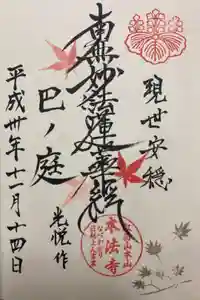 現世安穏
南無妙法蓮華経
巴ノ庭
光悦作
平成卅年十一月十四日
本法寺